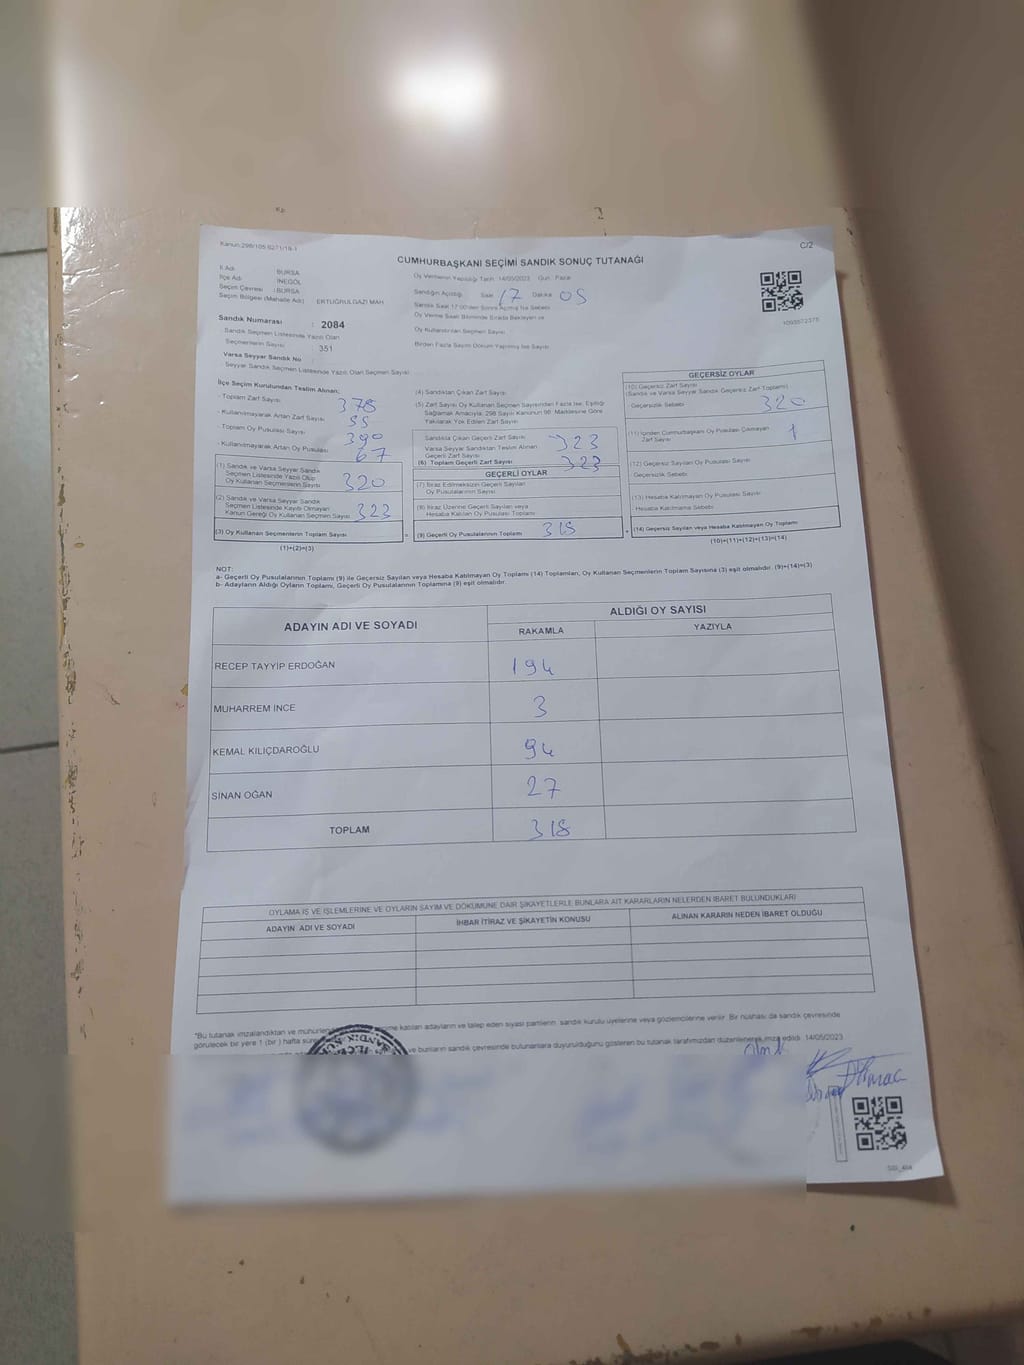 Kanun:298/105 6271/18-1
C/2
CUMHURBAŞKANI SEÇİMİ SANDIK SONUÇ TUTANAĞI
İl Adı : BURSA
İlçe Adı : İNEGÖL
Seçim Çevresi : BURSA
Seçim Bölgesi (Mahalle Adı) : ERTUĞRULGAZİ MAH.
Sandık Numarası : 2084
Sandık Seçmen Listesinde Yazılı Olan
Seçmenlerin Sayısı : 351
Varsa Seyyar Sandık No :
Seyyar Sandık Seçmen Listesinde Yazılı Olan Seçmen Sayısı
Oy Vermenin Yapıldığı Tarih 14/05/2023 Gün : Pazar
Sandığın Açıldığı Saat 17 Dakika 05
Sandık Saat 17:00'den Sonra Açılmış İse Sebebi
Oy Verme Saati Bitiminde Sırada Bekleyen ve
Oy Kullandırılan Seçmen Sayısı
Birden Fazla Sayım Döküm Yapılmış İse Sayısı
İlçe Seçim Kurulundan Teslim Alınan;
- Toplam Zarf Sayısı 378
- Kullanılmayarak Artan Zarf Sayısı 55
- Toplam Oy Pusulası Sayısı 390
- Kullanılmayarak Artan Oy Pusulası 67
(1) Sandık ve Varsa Seyyar Sandık
Seçmen Listesinde Yazılı Olup
Oy Kullanan Seçmenlerin Sayısı 320
(2) Sandık ve Varsa Seyyar Sandık
Seçmen Listesinde Kayıtlı Olmayan
Kanun Gereği Oy Kullanan Seçmen Sayısı 323
(3) Oy Kullanan Seçmenlerin Toplam Sayısı
(1)+(2)=(3)
(4) Sandıktan Çıkan Zarf Sayısı
(5) Zarf Sayısı Oy Kullanan Seçmen Sayısından Fazla İse, Eşitliği
Sağlamak Amacıyla; 298 Sayılı Kanunun 98. Maddesine Göre
Yakılarak Yok Edilen Zarf Sayısı
Sandıkta Çıkan Geçerli Zarf Sayısı 323
Varsa Seyyar Sandıktan Teslim Alınan
Geçerli Zarf Sayısı
(6) Toplam Geçerli Zarf Sayısı 323
GEÇERLİ OYLAR
(7) İtiraz Edilmeksizin Geçerli Sayılan
Oy Pusulalarının Sayısı
(8) İtiraz Üzerine Geçerli Sayılan veya
Hesaba Katılan Oy Pusulası Toplamı
= (9) Geçerli Oy Pusulalarının Toplamı 318 +
GEÇERSİZ OYLAR
(10) Geçersiz Zarf Sayısı
(Sandık ve Varsa Seyyar Sandık Geçersiz Zarf Toplamı) 320
Geçersizlik Sebebi
(11) İçinden Cumhurbaşkanı Oy Pusulası Çıkmayan
Zarf Sayısı 1
(12) Geçersiz Sayılan Oy Pusulası Sayısı
Geçersizlik Sebebi
(13) Hesaba Katılmayan Oy Pusulası Sayısı
Hesaba Katılmama Sebebi
(14) Geçersiz Sayılan veya Hesaba Katılmayan Oy Toplamı
(10)+(11)+(12)+(13)=(14)
NOT:
a- Geçerli Oy Pusulalarının Toplamı (9) ile Geçersiz Sayılan veya Hesaba Katılmayan Oy Toplamı (14) Toplamları, Oy Kullanan Seçmenlerin Toplam Sayısına (3) eşit olmalıdır. (9)+(14)=(3)
b- Adayların Aldığı Oyların Toplamı, Geçerli Oy Pusulalarının Toplamına (9) eşit olmalıdır.
ADAYIN ADI VE SOYADI
ALDIĞI OY SAYISI
RAKAMLA YAZIYLA
RECEP TAYYİP ERDOĞAN 194
MUHARREM İNCE 3
KEMAL KILIÇDAROĞLU 94
SİNAN OĞAN 27
TOPLAM 318
OYLAMA İŞ VE İŞLEMLERİNE VE OYLARIN SAYIM VE DÖKÜMÜNE DAİR ŞİKAYETLERLE BUNLARA AİT KARARLARIN NELERDEN İBARET BULUNDUKLARI
ADAYIN ADI VE SOYADI
İHBAR İTİRAZ VE ŞİKAYETİN KONUSU
ALINAN KARARIN NEDEN İBARET OLDUĞU
"Bu tutanak imzalandıktan ve katılan adayların ve talep eden siyasi partilerin sandık kurulu üyelerine veya gözlemcilerine verilir. Bir nüshası da sandık çevresinde
görülecek bir yere 1 (bir) hafta ve bunların sandık çevresinde bulunanlara duyurulduğunu gösteren bu tutanak tarafımızdan düzenlenerek imza edildi. 14/05/2023